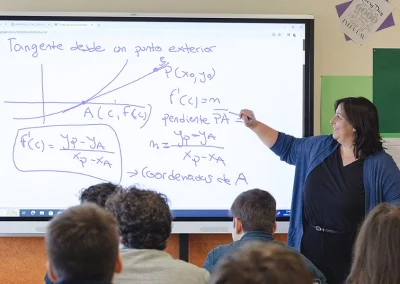 Tangente desde un punto exterior
P(x₀,y₀)
A(c, f(c))
f'(c)=m
pendiente PA =
m = (yP-yA)/(xP-xA)
f'(c) = (yP-yA)/(xP-xA)
→ Coordenadas de A